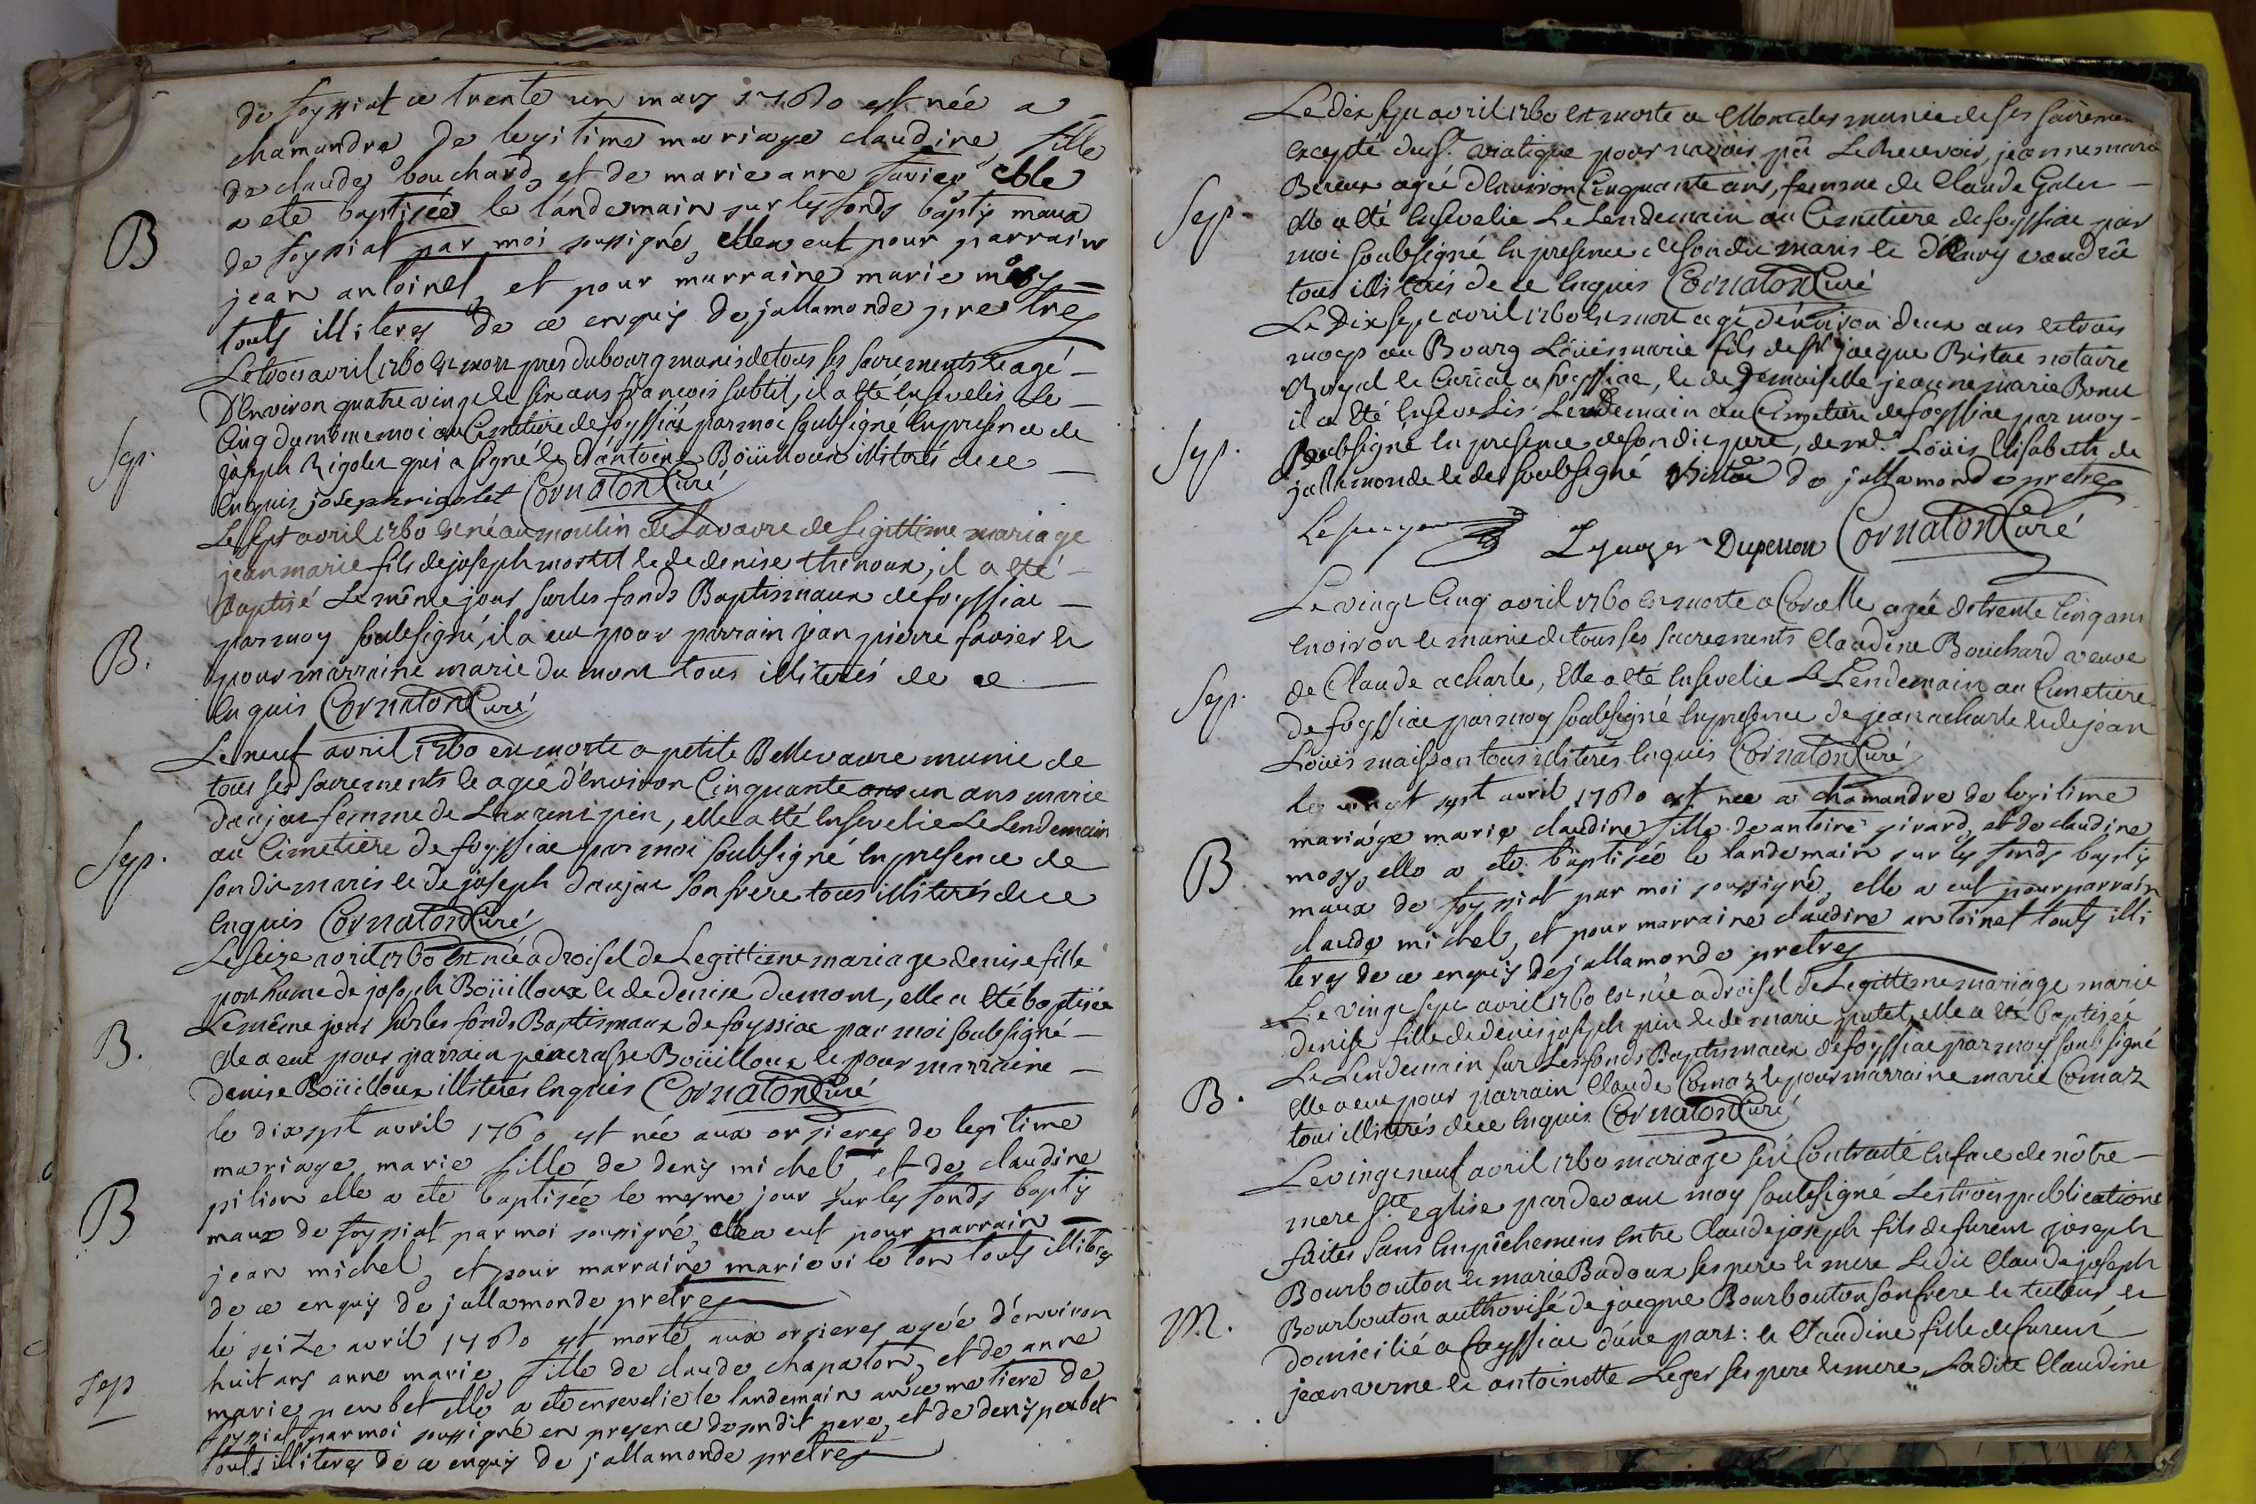 de foyssiat ce trente un mars 1760 est née a
chamandre de legitime mariage claudine fille
de claude bouchard, et de marie anne favier elle
a eté baptisée le landemain sur les fonds baptis maux
B
de foyssiat par moi soussigné, elle a eut pour parrain
jean antoinet, et pour marraine marie mory
touts illiteres de ce enquis de jallamonde prestres
Le trois avril 1760 est mort pres du bourg munis de tous ses sacrements et agé
D'Environ quatre vingt et six ans françois subtil, il a été Ensevelis Le
Cinq du même moi au Cimetière de foyssiat par moi soubsigné En presence de
Sep.
joseph Rigolet qui a signé et d'antoine Boüilloux illiterés de ce
Enquis joseph rigolet Cornaton Curé
Le sept avril 1760 est né au moulin de Lavavre de Legittime mariage
jean marie fils de joseph mortel et de denise thenoux, il a été
Baptisé Le même jour sur les fonds Baptismaux de foyssiat
par moy soubsigné, il a eu pour parrain jean pierre favier et
B.
pour marraine marie du mont tous illiterés de ce
Enquis Cornaton Curé
Le neuf avril 1760 est morte a petite Bellevavre munie de
tous ses sacrements et agée d'Environ Cinquante ans un ans marie
Danjat femme de Laurent pin, elle a été Ensevelie Le Lendemain
Sep.
au Cimetière de foyssiat par moi soubsigné En presence de
son dit maris et de joseph danjat son frere tous illiterés de ce
Enquis Cornaton Curé
Le seize avril 1760 est née a droisel de Legittime mariage denise fille
posthume de joseph Boüilloux et de denise dumont, elle a été baptisée
B.
Le même jour sur les fonds Baptismaux de foyssiat par moi soubsigné
elle a eu pour parrain pancrasse Boüilloux et pour marraine
Denise Boüilloux illiterés Enquis Cornaton Curé
le dix sept avril 1760 est née aux orsieres de legitime
mariage marie fille de denis michel et de claudine
pilion elle a eté baptisée le mesme jour sur les fonds baptis
B
maux de foyssiat par moi soussigné, elle a eut pour parrain
jean michel, et pour marraine marie vileton touts illiteres
de ce enquis de jallamonde pretres
le seize avril 1760 est morte aux orsieres agée d'environ
huit ans anne marie, fille de claude chapaton, et de anne
sep
marie penbet elle a eté ensevelie le landemain au cemetiere de
foyssiat par moi soussigné en presence de sondit pere, et de denis penbet
touts illiteres de ce enquis de jallamonde pretres
Le dix sept avril 1760 est morte a munie de ses sacremens
Excepté du St. viatique pour n'avoir pû Le Recevoir, jeanne marie
Bereux agée d'Environ Cinquante ans, femme de Claude Galer
Sep.
elle a été Ensevelie Le Lendemain au Cimetiere de foyssiat par
moi soubsigné En presence de son dit maris et d'Enry vaudrü
tous illiterés de ce Enquis Cornaton Curé
Le Dix sept avril 1760 est mort agé d'Environ deux ans et trois
moys au Bourg Loüis marie fils de Sr. jacque Bistac notaire
Royal et Curial a foyssiat, et de Demoiselle jeanne marie Bonn
il a été Ensevelis Lendemain au Cimetiere de foyssiat par moy
Sep.
Soubsigné En presence de son dit pere, de mr. Loüis Elisabeth de
jallamonde et des soubsigné Bistac de jallamonde pretres
Leguayer Duperron Cornaton Curé
Le vingt Cinq avril 1760 est morte a Corcelle agée de trente Cinq ans
Environ et munie de tous ses sacrements Claudine Bouchard veuve
Sep.
de Claude acharle, Elle a été Ensevelie Le Lendemain au Cimetiere
de foyssiat par moy soubsigné En presence de jean acharle et de jean
Loüis maisson tous illiterés Enquis Cornaton Curé
le vingt sept avril 1760 est née a chamandre de legitime
mariage marie claudine fille de antoine girard, et de claudine
B
mory, elle a eté baptisée le landemain sur les fonds baptis
maux de foyssiat par moi soussigné, elle a eut pour parrain
claude michel, et pour marraine claudine antoinet touts illi
teres de ce enquis de jallamonde pretres
Le vingt sept avril 1760 est née a droisel de Legittime mariage marie
denise fille de denis joseph pin et de marie putet, elle a été baptisée
Le Lendemain sur Les fonds Baptismaux de foyssiat par moy soubsigné
B.
elle a eu pour parrain Claude Comaz et pour marraine marie Comaz
tous illiterés de ce Enquis Cornaton Curé
Le vingt neuf avril 1760 mariage fut Contracté En face de nôtre
mere Ste eglise par devant moy soubsigné Les trois publications
faites sans Empêchemens Entre Claude joseph fils de furent joseph
Bourbouton et marie Budoux ses pere et mere Ledit Claude joseph
M.
Bourbouton authorisé de jacque Bourbouton son frere et tuteur et
domicilié a foyssiat d'une part: et Claudine fille de furent
jean verne et antoinette Leger ses pere et mere, Ladite Claudine